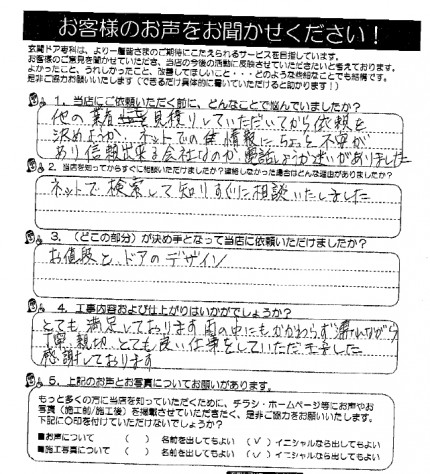 お客様のお声をお聞かせください！
玄関ドア専科は、より一層皆さまのご期待にこたえられるサービスを目指しています。
お客様のご意見を聞かせていただき、当店の今後の活動に反映させていただきたいと考えております。
よかったこと、うれしかったこと、改善してほしいこと・・・どのような些細なことでも結構です。
是非ご協力お願いいたします（できるだけ具体的に書いていただけると助かります！）
1．当店にご依頼いただく前に、どんなことで悩んでいましたか？
他の業者 見積りしていただいてから依頼を
決めようか、ネットでの 情報にちょっと不安が
あり信頼出来る会社なのか 電話しようか迷いがありました
2．当店を知ってからすぐに相談いただけましたか？連絡しなかった場合はどんな理由がありましたか？
ネットで検索して知りすぐに相談いたしました
3．（どこの部分）が決め手となって当店に依頼いただけましたか？
お値段と ドアのデザイン
4．工事内容および仕上がりはいかがでしょうか？
とても満足しております 雨の中にもかかわらず濡れながら
丁寧、親切、とても良い仕事をしていただきました
感謝しております
5．上記のお声とお写真についてお願いがあります。
もっと多くの方に当店を知っていただくために、チラシ・ホームページ等にお声やお
写真（施工前/施工後）を掲載させていただきたく、是非ご協力をお願いいたします。
下記に〇印を付けていただけないでしょうか？
■お声について （ ） 名前を出してもよい （✓）イニシャルなら出してもよい
■施工写真について （ ） 名前を出してもよい （✓）イニシャルなら出してもよい